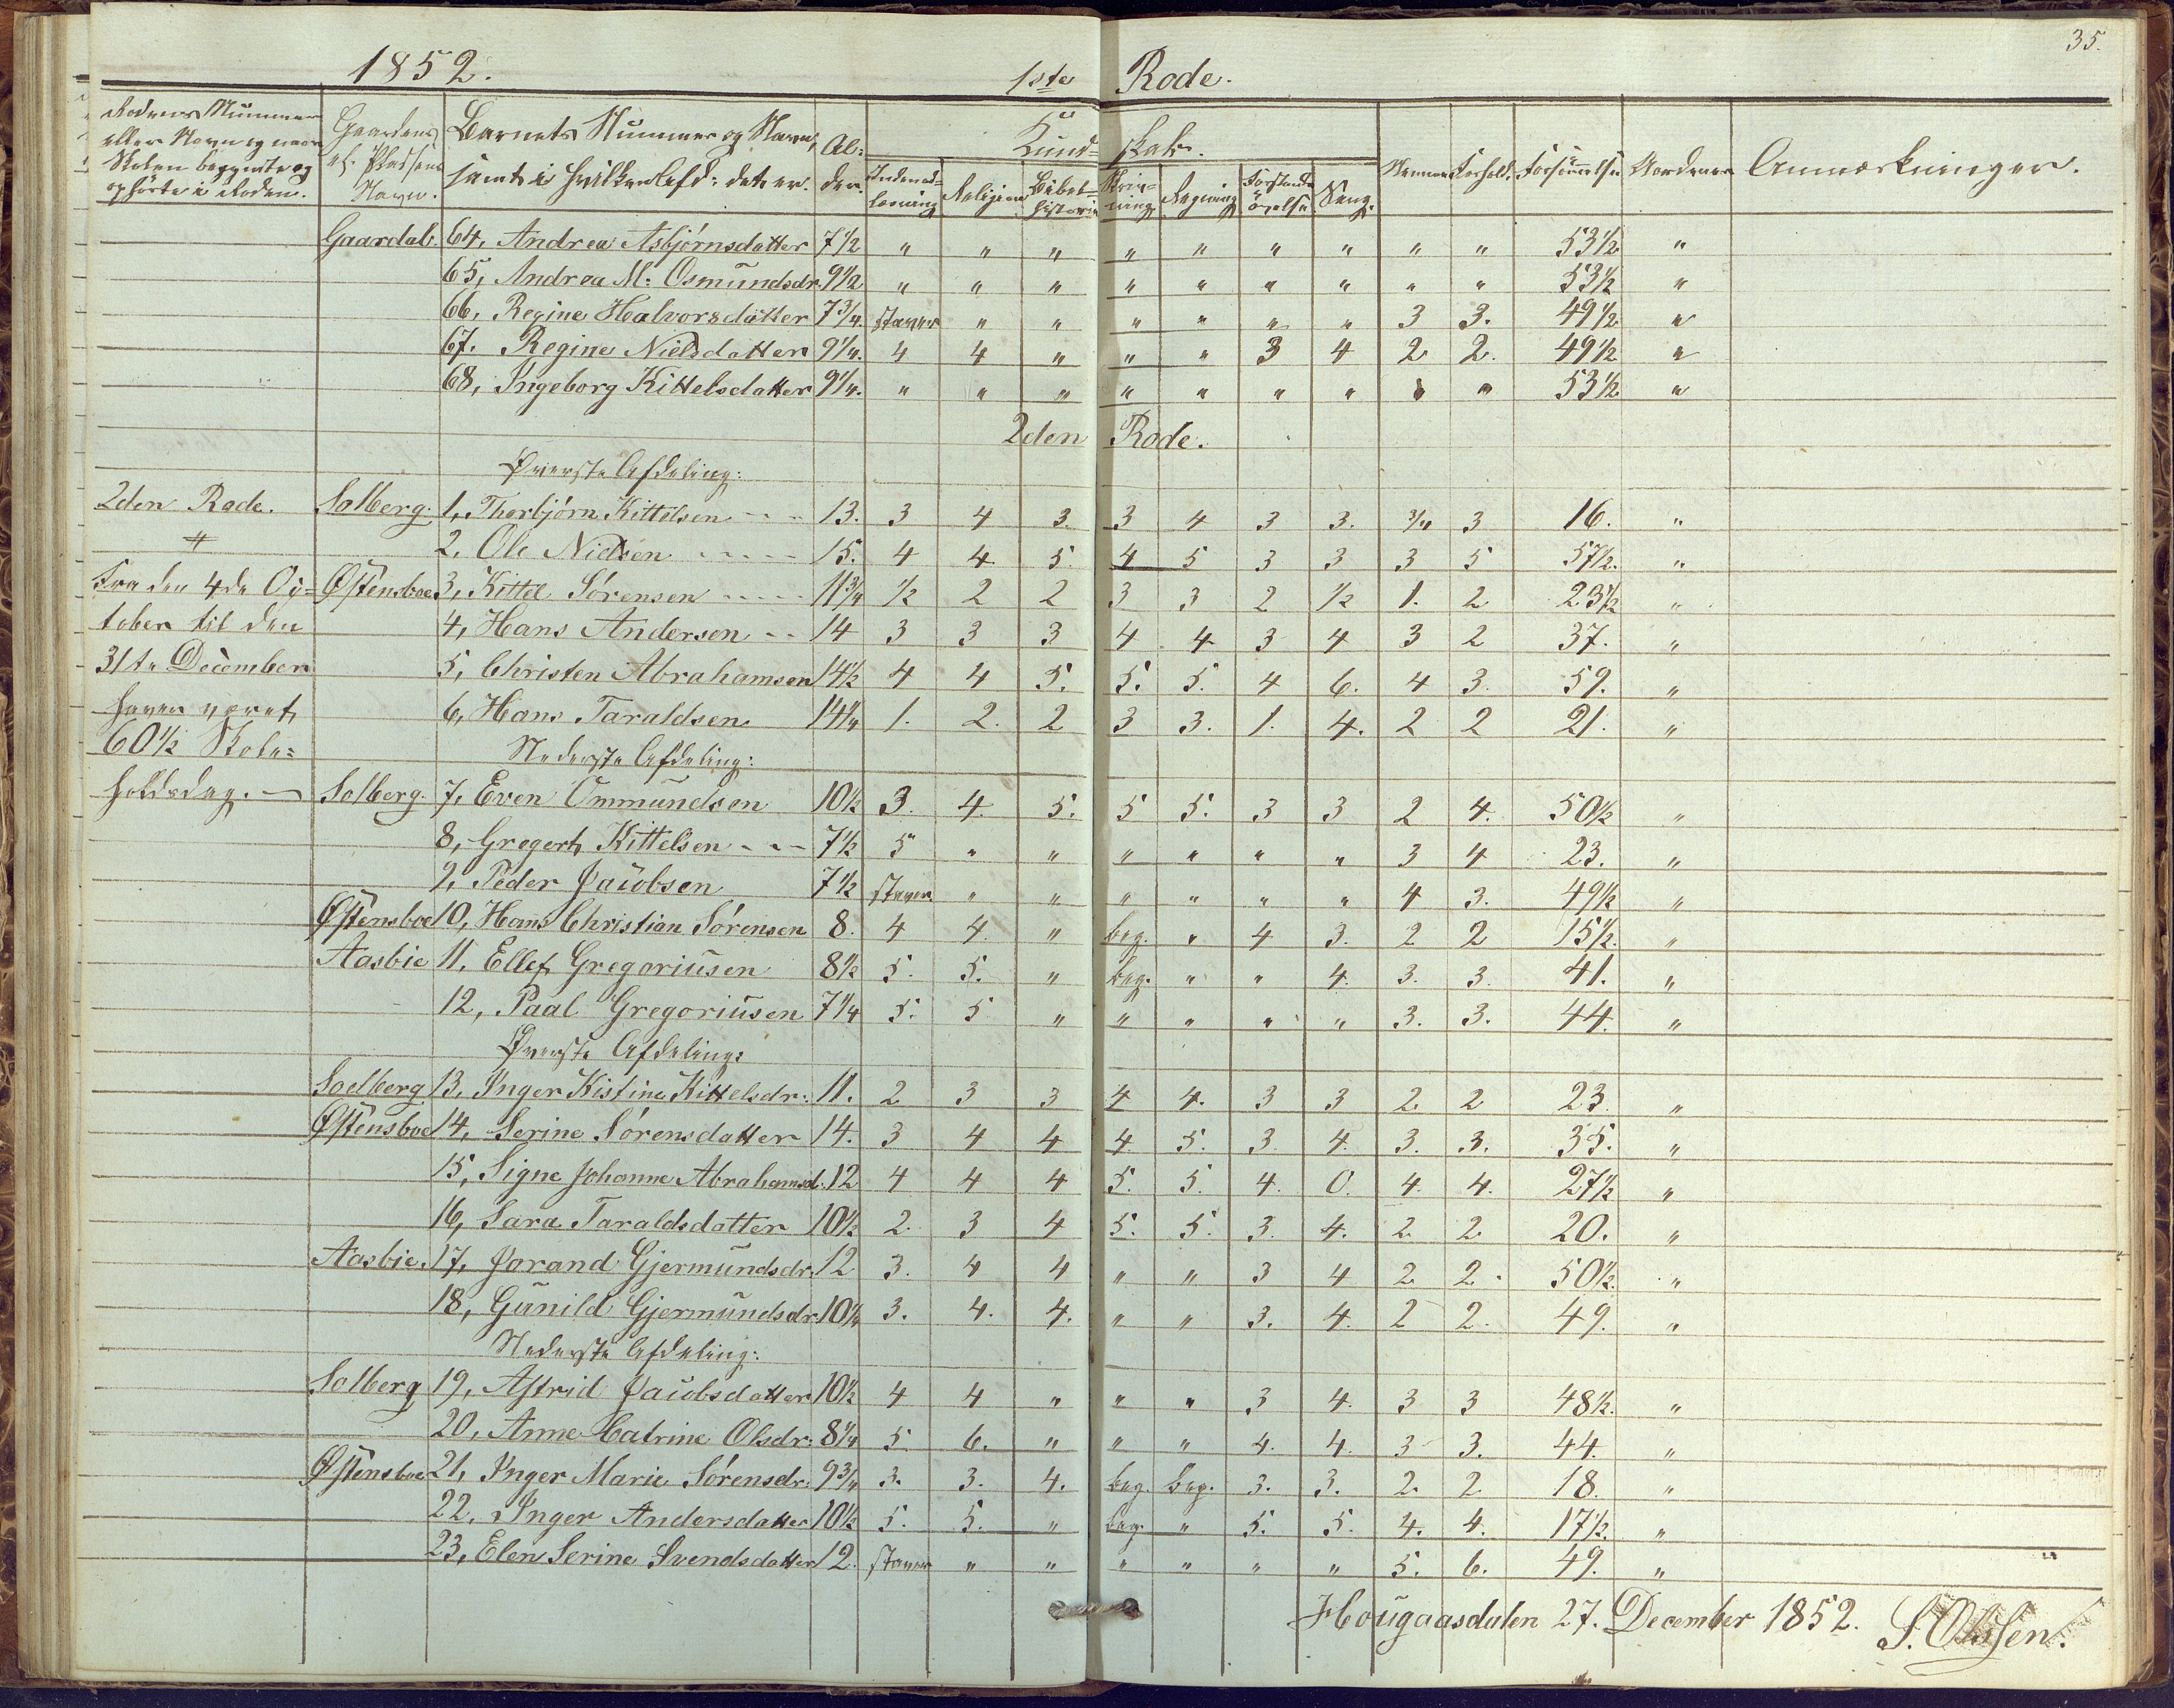 35.
1852. 1ste Rode.
Rodens Nummer eller Navn og naar Skolen begyndte og ophörte i Roden. Gaardens el. Pladsens Navn. Barnets Nummer og Navn, samt i hvilken Afd: det er. Al: der. Kund= skab.
Indenad= læsning Religion Bibel= historie Skriv= ning Regning Forstands övelse Sang. Nemme Forhold. Forsömmelse Anmærkninger.
Gaardal. 64, Andrea Asbjörnsdatter 7½ " " " " " " " " " 53½ "
65, Andrea M: Osmundsdr. 9½ " " " " " " " " " 53½ "
66, Regine Halvorsdatter 7¾. staver " " " " " " 3 3. 49½ "
67. Regine Nielsdatter 9¼. 4 4 " " " 3 4 2 2. 49½ "
68, Ingeborg Kittelsdatter 9¼. " " " " " " " " " 53½ "
2den Rode.
Øverste Afdeling:
2den Rode. Solberg. 1, Thorbjörn Kittelsen 13. 3 4 3. 3 4 3 3. ¾ 3 16. "
2, Ole Nielsen 15. 4 4 5. 4 5 3 3 3 5 57½. "
Fra den 4de Oc= Østensboe 3, Kittel Sörensen 11¾ ½ 2 2 3 3 2 ½ 1. 2 23½ "
tober til den 4, Hans Andersen 14 3 3 3 4 4 3 4 3 2 37. "
31te December 5, Christen Abrahamsen 14½ 4 4 5. 5. 5. 4 6. 4 3. 59. "
haver været 6, Hans Taraldsen 14¼ 1. 2. 2 3 3. 1. 4. 2 2 21. "
60½ Skole= Nederste Afdeling:
holdsdag. Solberg. 7, Even Ommundsen 10½ 3. 4. 5. 5 5. 3 3 2 4. 50½ "
8, Gregert Kittelsen 7½ 5 " " " " " " 3 4 23. "
9, Peder Jacobsen 7½ staver " " " " " " 4 3. 49½ "
Østensboe 10, Hans Christian Sörensen 8. 4 4. " beg. " 4 3. 2 2 15½. "
Aasbie 11, Ellef Gregoriusen 8½ 5. 5. " beg. " " 4. 3. 3. 41. "
12, Paal Gregoriusen 7¼ 5. 5 " " " " " 3. 3. 44. "
Øverste Afdeling:
Soelberg 13, Inger Kistine Kittelsdr: 11. 2 3 3 4 4. 3 3 2 2 23. "
Østensboe 14, Serine Sörensdatter 14. 3 4 4 4. 5. 3. 4. 3. 3. 35. "
15, Signe Johanne Abrahamsd. 12 4 4 4 5. 5. 4. 0. 4. 4. 27½ "
16, Sara Taraldsdatter 10½ 2. 3 4 5. 5. 3. 4. 2. 2. 20. "
Aasbie. 17, Jorand Gjermundsdr. 12 3. 4 4 " " 3 4 2 2. 50½. "
18, Gunild Gjermundsdr. 10¼ 3. 4. 4. " " 3. 4. 2 2. 49. "
Nederste Afdeling:
Solberg 19, Astrid Jacobsdatter 10½ 4 4 " " " 3 4. 3 3 48½. "
20, Anne Catrine Olsdr: 8¼ 5. 6. " " " 4. 4. 3 3. 44. "
Østensboe 21, Inger Marie Sörensdr. 9¾ 3. 3. 4. beg. beg. 3. 3. 2. 2. 18. "
22, Inger Andersdatter 10½ 5. 5. " beg. " 5. 5. 4. 4. 17½. "
23, Elen Serine Svendsdatter 12. staver " " " " " " 5. 6. 49. "
Hougaasdalen 27. December 1852. S. Olssen.